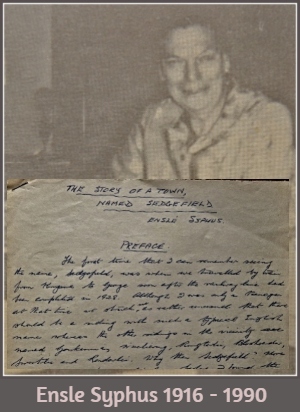 THE STORY OF A TOWN,
NAMED SEDGEFIELD
ENSLÉ SYPHUS
PREFACE
The first time that I ever remember seeing
the name, Sedgefield, was when we travelled by train
from Knysna to George soon after the railway line had
been completed in 1928. Although I was only a teenager
at that time it struck me rather unusual that there
should be a siding with such a typical English
name whereas the other sidings in the vicinity were
named
and Why then Sedgefield?
the
Ensle Syphus 1916 - 1990